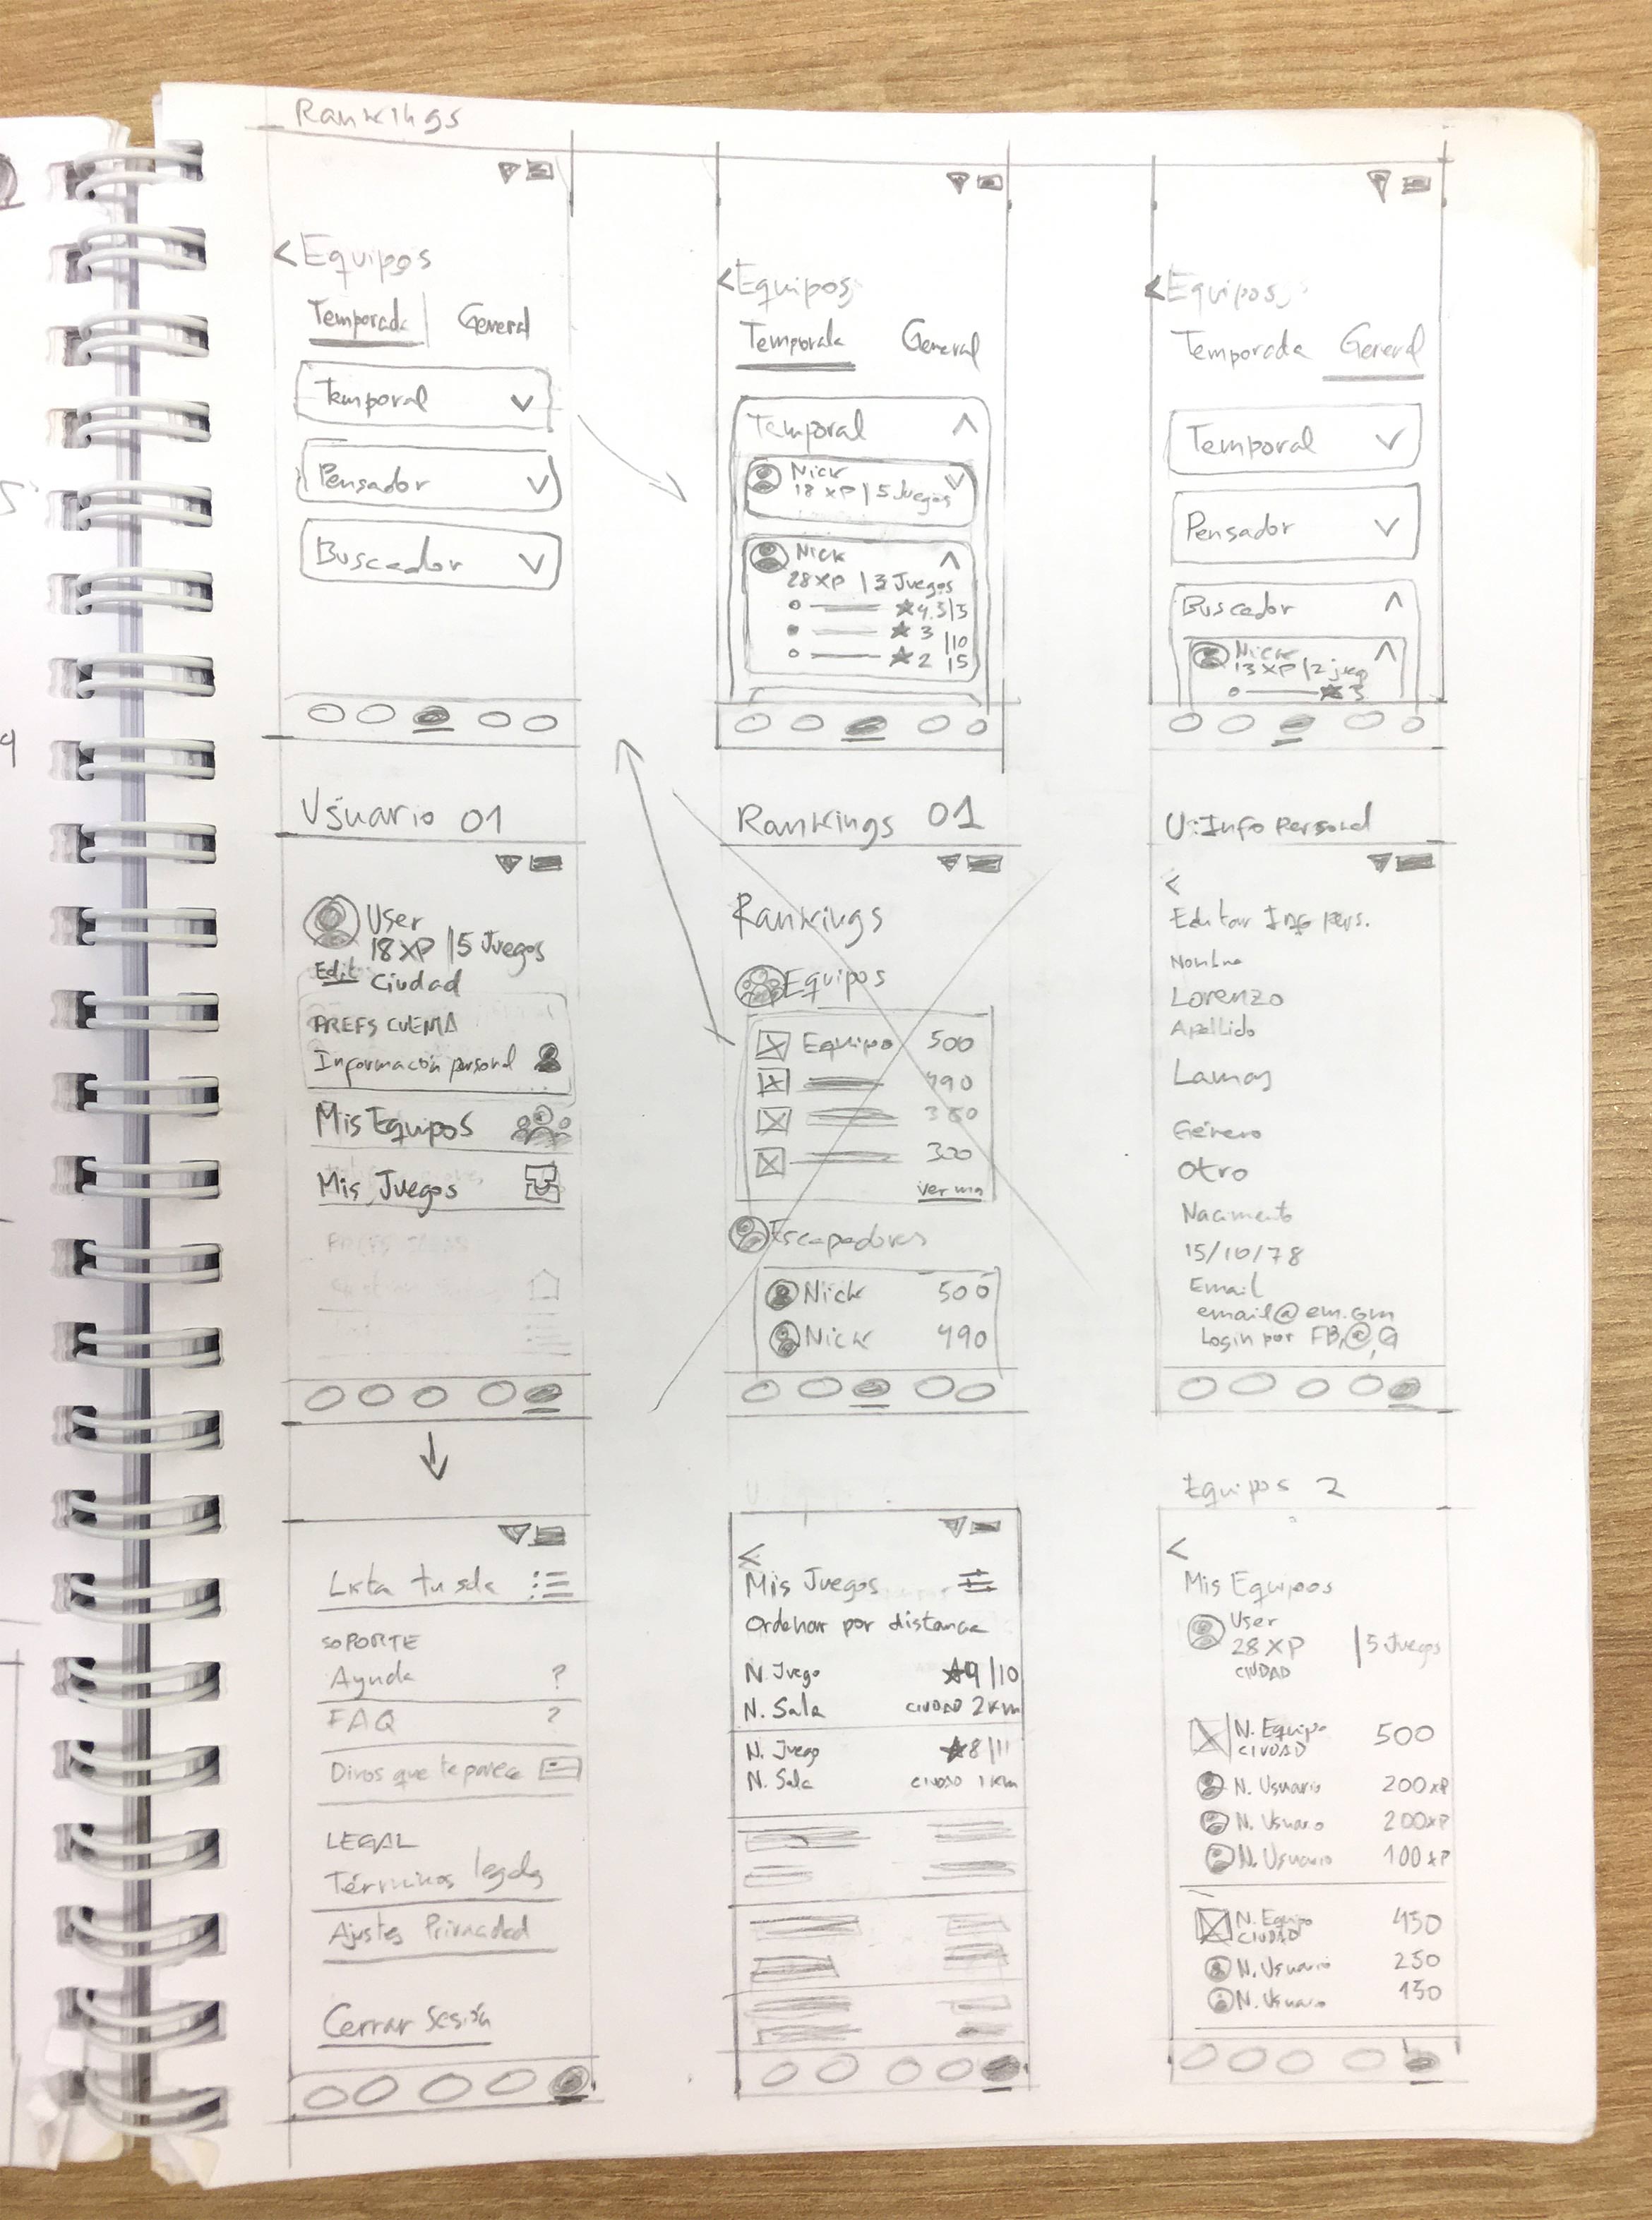 Rankings
< Equipos
Temporada General
Temporal
Pensador
Buscador
< Equipos
Temporada General
Temporal
Nick
18 XP | 5 Juegos
Nick
28 XP | 3 Juegos
★ 4.5/5
★ 3 /10
★ 2 /5
< Equipos
Temporada General
Temporal
Pensador
Buscador
Nick
13 XP | 2 jueg
★ 3
Usuario 01
User
18 XP | 5 Juegos
Edit Ciudad
PREFS CUENTA
Información personal
Mis Equipos
Mis Juegos
Rankings 01
Rankings
Equipos
Equipo 500
490
380
300
Ver mas
Escapadores
Nick 500
Nick 490
U: Info Personal
<
Editar Inf pers.
Nombre
Lorenzo
Apellido
Lamas
Género
Otro
Nacimiento
15/10/78
Email
email@em.com
Login por FB, @, G
Lista tu sala
SOPORTE
Ayuda ?
FAQ ?
Dinos que te parece
LEGAL
Términos legales
Ajustes Privacidad
Cerrar Sesión
<
Mis Juegos
Ordenar por distancia
N. Juego ★9/10
N. Sala CIUDAD 2 Km
N. Juego ★8/11
N. Sala CIUDAD 1 Km
Equipos 2
<
Mis Equipos
User
28 XP | 5 Juegos
CIUDAD
N. Equipo 500
CIUDAD
N. Usuario 200 XP
N. Usuario 200 XP
N. Usuario 100 XP
N. Equipo 450
CIUDAD
N. Usuario 250
N. Usuario 150